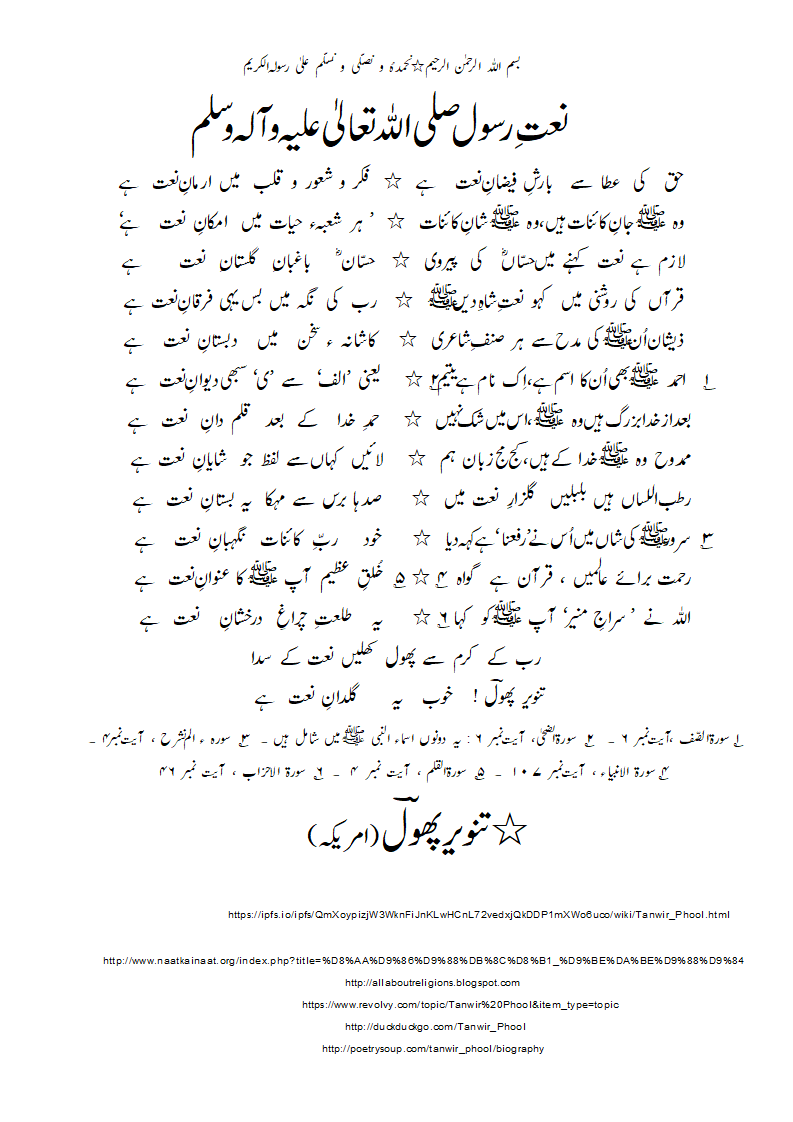 بسم اللہ الرحمٰن الرحیم☆نحمدہٗ و نصلّی و نسلّم علیٰ رسولہ الکریم
نعتِ رسول صلی اللہ تعالیٰ علیہ و آلہ وسلم
حق کی عطا سے بارشِ فیضانِ نعت ہے ☆ فکر و شعور و قلب میں ارمانِ نعت ہے
وہ ﷺ جانِ کائنات ہیں، وہ ﷺ شانِ کائنات ☆ ’ ہر شعبہء حیات میں امکانِ نعت ہے‘
لازم ہے نعت کہنے میں حسّاںؓ کی پیروی ☆ حسّانؓ باغبانِ گلستانِ نعت ہے
قرآں کی روشنی میں کہو نعتِ شاہِ دیں ﷺ ☆ رب کی نگہ میں بس یہی فرقانِ نعت ہے
ذیشان اُن ﷺ کی مدح سے ہر صنفِ شاعری ☆ کاشانہ ء سخن میں دبستانِ نعت ہے
۱؎ احمد ﷺ بھی اُن کا اسم ہے، اِک نام ہے یتیم ۲؎ ☆ یعنی ’الف‘ سے ’ی‘ سبھی دیوانِ نعت ہے
بعد از خدا بزرگ ہیں وہ ﷺ، اس میں شک نہیں ☆ حمدِ خدا کے بعد قلم دانِ نعت ہے
ممدوح وہ ﷺ خدا کے ہیں، کج مج زبان ہم ☆ لائیں کہاں سے لفظ جو شایانِ نعت ہے
رطب اللساں ہیں بلبلیں گلزارِ نعت میں ☆ صدہا برس سے مہکا یہ بستانِ نعت ہے
۳؎ سرور ﷺ کی شاں میں اُس نے ’رفعنا‘ ہے کہہ دیا ☆ خود ربِّ کائنات نگہبانِ نعت ہے
رحمت برائے عالمیں ، قرآن ہے گواہ ۴؎ ☆ ۵؎ خُلقِ عظیم آپ ﷺ کا عنوانِ نعت ہے
اللہ نے ’ سراجِ منیر‘ آپ ﷺ کو کہا ۶؎ ☆ یہ طلعتِ چراغِ درخشانِ نعت ہے
رب کے کرم سے پھول کھلیں نعت کے سدا
تنویر پھولؔ ! خوب یہ گلدانِ نعت ہے
۱؎ سورۃ الصّف ، آیت نمبر ۶ ۔ ۲؎ سورۃ الضحیٰ، آیت نمبر ۶ : یہ دونوں اسماء النبی ﷺ میں شامل ہیں ۔ ۳؎ سورہ ء الم نشرح ، آیت نمبر ۴ ۔
۴؎ سورۃ الانبیاء ، آیت نمبر ۱۰۷ ۔ ۵؎ سورۃ القلم ، آیت نمبر ۴ ۔ ۶؎ سورۃ الاحزاب ، آیت نمبر ۴۶
☆ تنویر پھولؔ (امریکہ)
https://ipfs.io/ipfs/QmXoypizjW3WknFiJnKLwHCnL72vedxjQkDDP1mXWo6uco/wiki/Tanwir_Phool.html
http://www.naatkainaat.org/index.php?title=%D8%AA%D9%86%D9%88%DB%8C%D8%B1_%D9%BE%DA%BE%D9%88%D9%84
http://allaboutreligions.blogspot.com
https://www.revolvy.com/topic/Tanwir%20Phool&item_type=topic
http://duckduckgo.com/Tanwir_Phool
http://poetrysoup.com/tanwir_phool/biography